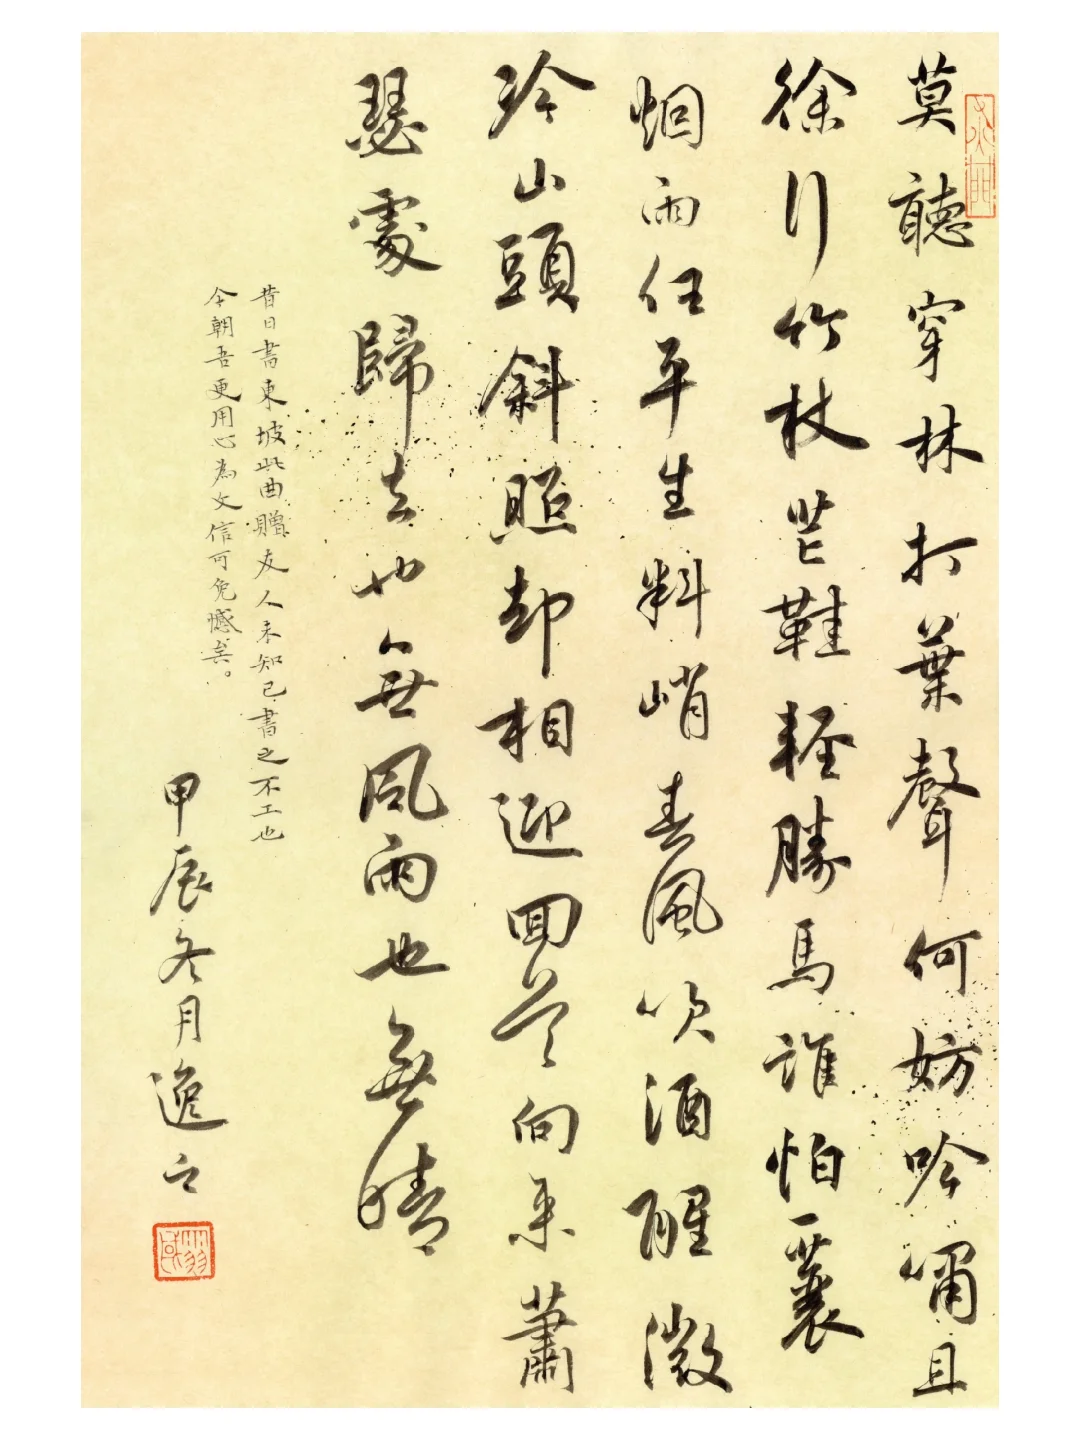 莫聽穿林打葉聲何妨吟嘯且
徐行竹杖芒鞋輕勝馬誰怕蓑
烟雨任平生料峭春風吹酒醒微
冷山頭斜照却相迎回首向來蕭
瑟處歸去也無風雨也無晴
昔日書東坡此曲贈友人未知己書之不工也
今朝吾更用心為文信可免憾矣。
甲辰冬月逸之